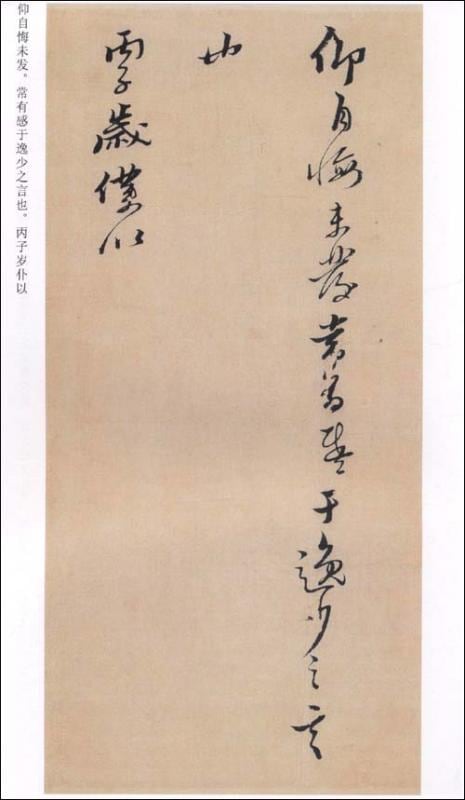 仰自悔未發常有感于逸少之言
也
丙子歲僕以
仰自悔未发。常有感于逸少之言也。丙子岁仆以